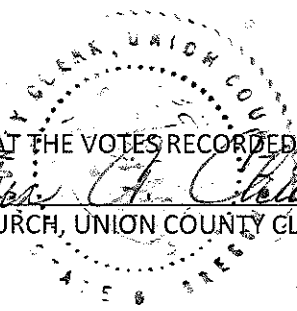 Y CLERK, UNION COU
AT THE VOTES RECORDED
URCH, UNION COUNTY CL
STATE OREGON